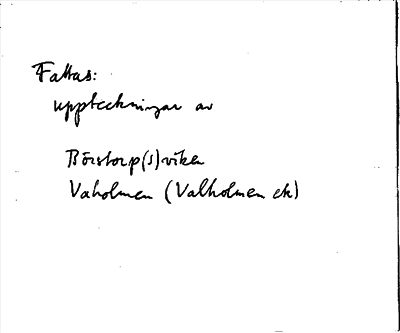 Fattas:
uppteckningar av
Börstorp(s)viken
Vaholmen (Valholmen ek)